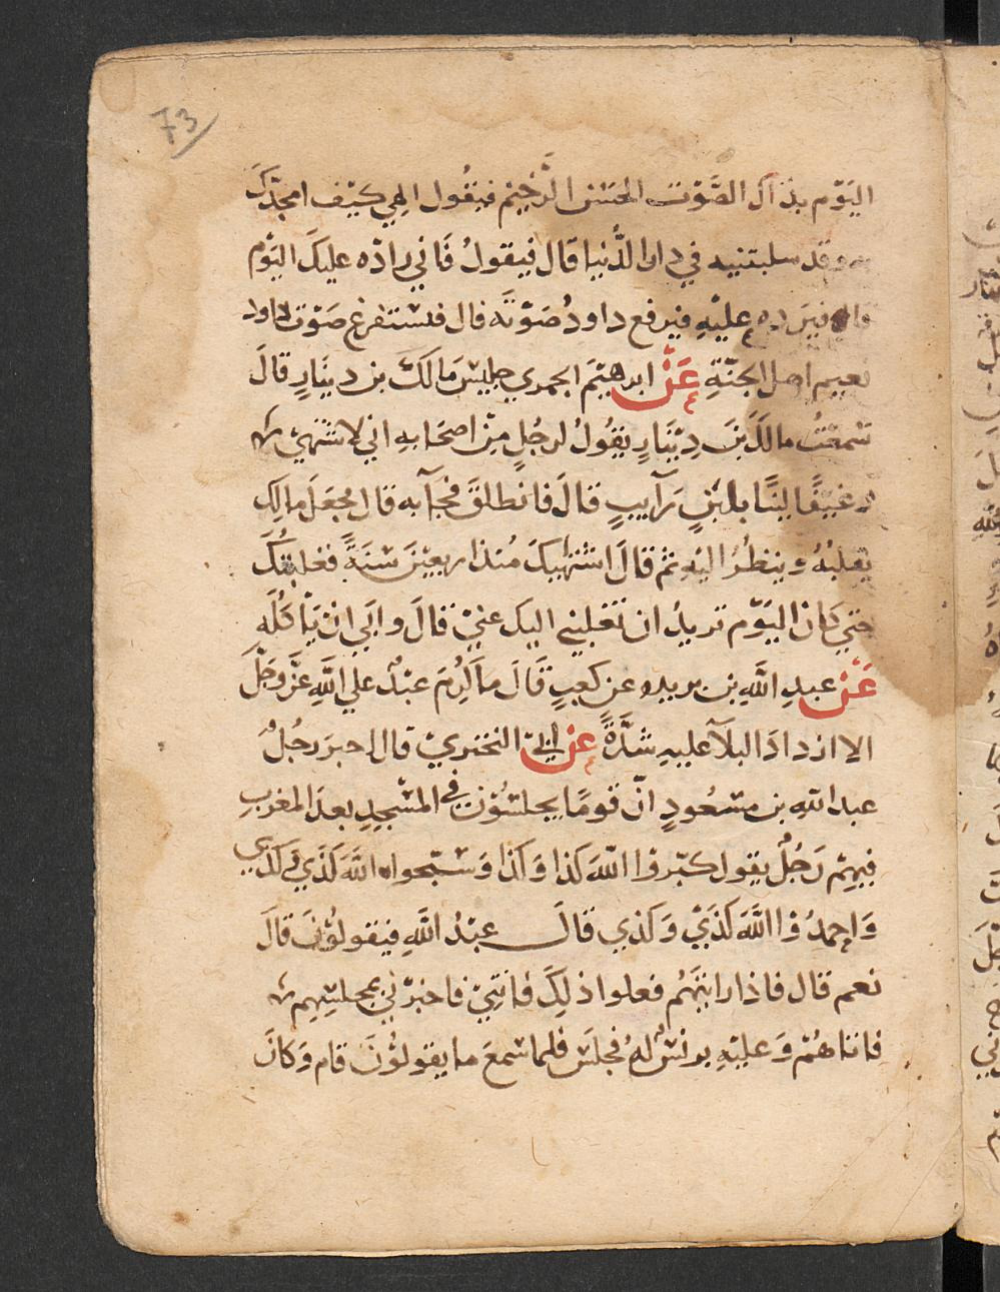 73
اليَوْم بذاك الصَّوْت الحَسَن الرَّخيْم فيَقُول الهي كيْف امجدّكَ
به وقد سلبتنيه في دار الدُّنيا قال فيقولُ فَاني رادّه عليكَ اليَوْم
قال فيَرده عليْهِ فيرفع داودُ صَوْتَه قال فستفرغ صَوْت داود
نعيم اهل الجنّةِ عَنْ ابرهيْمَ الجمدي جليسَ مَالك بن دينَارٍ قالَ
سَمعْتُ مالكَ بَن دِيْنَارٍ يقُولُ لرجُلٍ مِنْ اصحَابهِ اني لاشتهيْ
رغيْفًا ليّنًا بلبَنٍ رَآيبٍ قالَ فانطلقَ فجآبه قال فجعَلَ مالك
يقلبُهُ وينظُرُ اليْهِ ثم قالَ اشتهيتكَ مُنذ اربعيْنَ سَنَةً فغلبتُكَ
حتي كان اليَوْم تريدُ ان تغلبني اليك عنيْ قالَ وابَي ان يَاكُلَه
عَنْ عبدِ اللَّهِ بن بريده عن كعبٍ قَالَ ماكَرُمَ عبْدٌ علي اللَّهِ عزَّ وَجَلَّ
الا ازدادَ البلآ عليهِ شدَّةً عَنْ ابيْ البختريْ قال اخبرَ رجُلٌ
عبد الله بن مسْعُودٍ انّ قومًا يجلسُوْنَ في المسْجِدِ بعدَ المغربِ
فيهِمْ رَجُلٌ يقول كبّروْا اللهَ كذا وَكذا وَسَبّحوا اللَّهَ كذَي وَكذَي
وَاحمدُوْا اللَّهَ كذَيْ وَكذي قالَ عبْدُ اللَّهِ فيقولوُنَ قالَ
نعم قال فاذا رايتَهُم فعلوا ذلِكَ فأتنيْ فاخبرْني بمجلسِهِم
فاتاهُمْ وَعليْهِ برنسٌ لهُ فجلسَ فلما سَمعَ ما يقولوُنَ قام وَكانَ